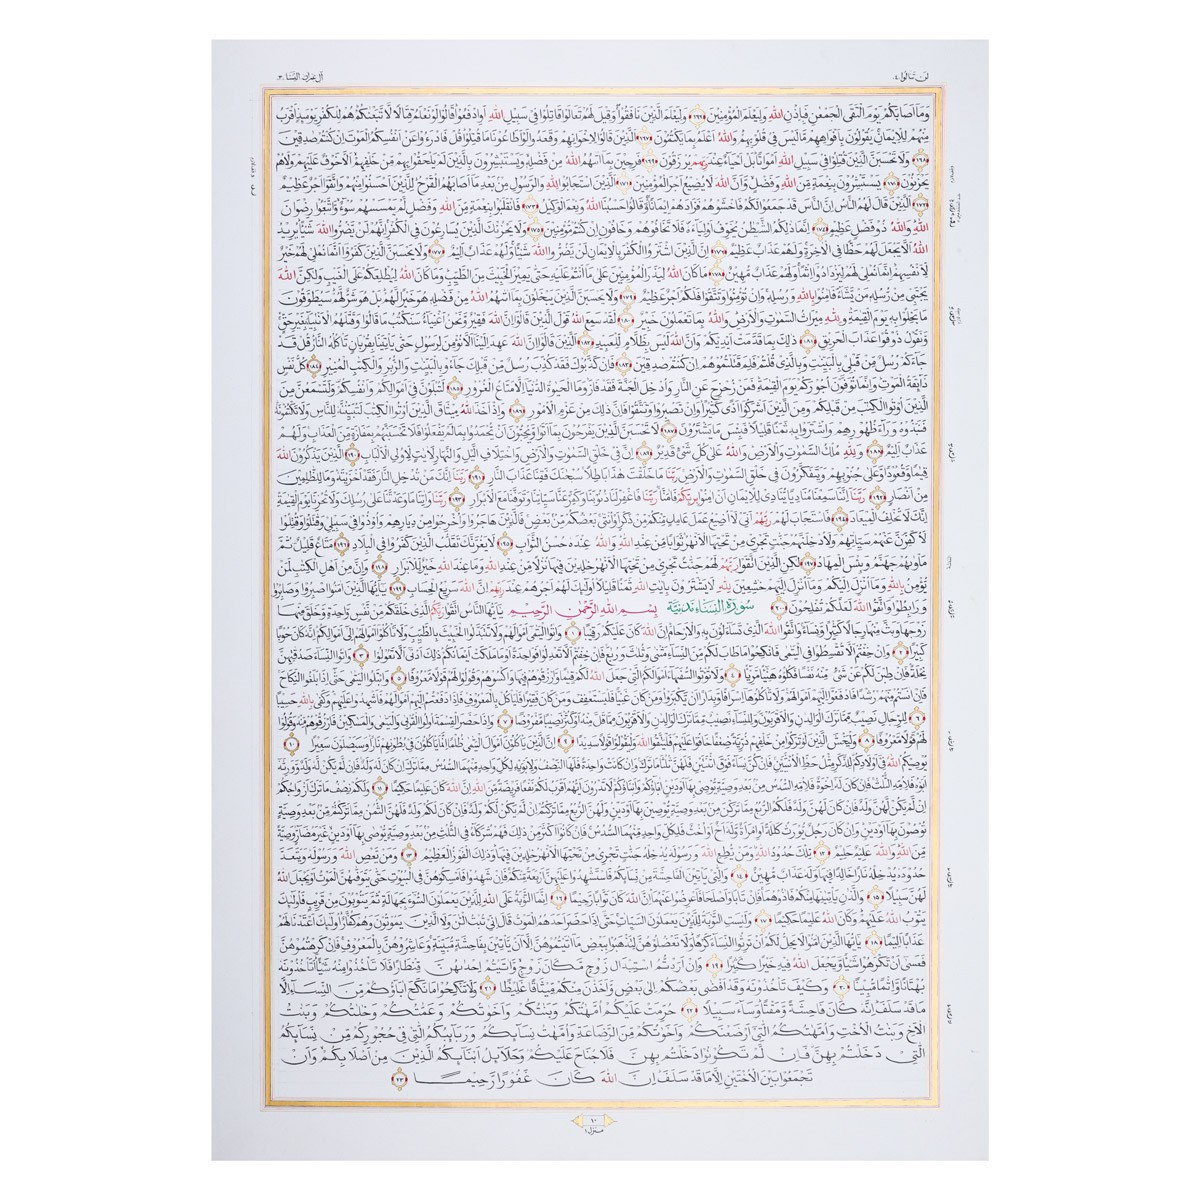 لن تنالوا ٤
آل عمران النسا ٣
وما اصابكم يوم التقى الجمعن فباذن الله وليعلم المؤمنين ١٦٦ وليعلم الذين نافقوا وقيل لهم تعالوا قاتلوا في سبيل الله او ادفعوا قالوا لو نعلم قتالا لا تبعنكم هم للكفر يومئذ اقرب
منهم للايمان يقولون بافواههم ما ليس في قلوبهم والله اعلم بما يكتمون ١٦٧ الذين قالوا لاخوانهم وقعدوا لو اطاعونا ما قتلوا قل فادرءوا عن انفسكم الموت ان كنتم صدقين
١٦٨ ولا تحسبن الذين قتلوا في سبيل الله امواتا بل احياء عند ربهم يرزقون ١٦٩ فرحين بما اتىهم الله من فضله ويستبشرون بالذين لم يلحقوا بهم من خلفهم الا خوف عليهم ولا هم
يحزنون ١٧٠ يستبشرون بنعمة من الله وفضل وان الله لا يضيع اجر المؤمنين ١٧١ الذين استجابوا لله والرسول من بعد ما اصابهم القرح للذين احسنوا منهم واتقوا اجر عظيم
١٧٢ الذين قال لهم الناس ان الناس قد جمعوا لكم فاخشوهم فزادهم ايمانا وقالوا حسبنا الله ونعم الوكيل ١٧٣ فانقلبوا بنعمة من الله وفضل لم يمسسهم سوء واتبعوا رضوان
الله والله ذو فضل عظيم ١٧٤ انما ذلكم الشيطن يخوف اولياءه فلا تخافوهم وخافون ان كنتم مؤمنين ١٧٥ ولا يحزنك الذين يسارعون في الكفر انهم لن يضروا الله شيئا يريد
الله الا يجعل لهم حظا في الاخرة ولهم عذاب عظيم ١٧٦ ان الذين اشتروا الكفر بالايمان لن يضروا الله شيئا ولهم عذاب اليم ١٧٧ ولا يحسبن الذين كفروا انما نملي لهم خير
لانفسهم انما نملي لهم ليزدادوا اثما ولهم عذاب مهين ١٧٨ ما كان الله ليذر المؤمنين على ما انتم عليه حتى يميز الخبيث من الطيب وما كان الله ليطلعكم على الغيب ولكن الله
يجتبي من رسله من يشاء فامنوا بالله ورسله وان تؤمنوا وتتقوا فلكم اجر عظيم ١٧٩ ولا يحسبن الذين يبخلون بما اتىهم الله من فضله هو خيرا لهم بل هو شر لهم سيطوقون
ما بخلوا به يوم القيمة ولله ميراث السموت والارض والله بما تعملون خبير ١٨٠ لقد سمع الله قول الذين قالوا ان الله فقير ونحن اغنياء سنكتب ما قالوا وقتلهم الانبياء بغير حق
ونقول ذوقوا عذاب الحريق ١٨١ ذلك بما قدمت ايديكم وان الله ليس بظلام للعبيد ١٨٢ الذين قالوا ان الله عهد الينا الا نؤمن لرسول حتى يأتينا بقربان تأكله النار قل قد
جاءكم رسل من قبلي بالبينت وبالذي قلتم فلم قتلتموهم ان كنتم صدقين ١٨٣ فان كذبوك فقد كذب رسل من قبلك جاءو بالبينت والزبر والكتب المنير ١٨٤ كل نفس
ذائقة الموت وانما توفون اجوركم يوم القيمة فمن زحزح عن النار وادخل الجنة فقد فاز وما الحيوة الدنيا الا متاع الغرور ١٨٥ لتبلون في اموالكم وانفسكم ولتسمعن من
الذين اوتوا الكتب من قبلكم ومن الذين اشركوا اذى كثيرا وان تصبروا وتتقوا فان ذلك من عزم الامور ١٨٦ واذ اخذ الله ميثاق الذين اوتوا الكتب لتبيننه للناس ولا تكتمونه
فنبذوه وراء ظهورهم واشتروا به ثمنا قليلا فبئس ما يشترون ١٨٧ لا تحسبن الذين يفرحون بما اتوا ويحبون ان يحمدوا بما لم يفعلوا فلا تحسبنهم بمفازة من العذاب ولهم
عذاب اليم ١٨٨ ولله ملك السموت والارض والله على كل شيء قدير ١٨٩ ان في خلق السموت والارض واختلاف اليل والنهار لايت لاولي الالباب ١٩٠ الذين يذكرون الله
قيما وقعودا وعلى جنوبهم ويتفكرون في خلق السموت والارض ربنا ما خلقت هذا باطلا سبحنك فقنا عذاب النار ١٩١ ربنا انك من تدخل النار فقد اخزيته وما للظلمين
من انصار ١٩٢ ربنا اننا سمعنا مناديا ينادي للايمان ان امنوا بربكم فامنا ربنا فاغفر لنا ذنوبنا وكفر عنا سياتنا وتوفنا مع الابرار ١٩٣ ربنا واتنا ما وعدتنا على رسلك ولا تخزنا يوم القيمة
انك لا تخلف الميعاد ١٩٤ فاستجاب لهم ربهم اني لا اضيع عمل عامل منكم من ذكر او انثى بعضكم من بعض فالذين هاجروا واخرجوا من ديارهم واوذوا في سبيلي وقتلوا وقتلوا
لاكفرن عنهم سياتهم ولادخلنهم جنت تجري من تحتها الانهر ثوابا من عند الله والله عنده حسن الثواب ١٩٥ لا يغرنك تقلب الذين كفروا في البلاد ١٩٦ متاع قليل ثم
مأوىهم جهنم وبئس المهاد ١٩٧ لكن الذين اتقوا ربهم لهم جنت تجري من تحتها الانهر خلدين فيها نزلا من عند الله وما عند الله خير للابرار ١٩٨ وان من اهل الكتب لمن
يؤمن بالله وما انزل اليكم وما انزل اليهم خشعين لله لا يشترون بايت الله ثمنا قليلا اولئك لهم اجرهم عند ربهم ان الله سريع الحساب ١٩٩ يايها الذين امنوا اصبروا وصابروا
ورابطوا واتقوا الله لعلكم تفلحون ٢٠٠ سورة النساء مدنية بسم الله الرحمن الرحيم يايها الناس اتقوا ربكم الذي خلقكم من نفس واحدة وخلق منها
زوجها وبث منهما رجالا كثيرا ونساء واتقوا الله الذي تساءلون به والارحام ان الله كان عليكم رقيبا ١ واتوا اليتمى اموالهم ولا تتبدلوا الخبيث بالطيب ولا تأكلوا اموالهم الى اموالكم انه كان حوبا
كبيرا ٢ وان خفتم الا تقسطوا في اليتمى فانكحوا ما طاب لكم من النساء مثنى وثلث وربع فان خفتم الا تعدلوا فواحدة او ما ملكت ايمانكم ذلك ادنى الا تعولوا ٣ واتوا النساء صدقتهن
نحلة فان طبن لكم عن شيء منه نفسا فكلوه هنيئا مريئا ٤ ولا تؤتوا السفهاء اموالكم التي جعل الله لكم قيما وارزقوهم فيها واكسوهم وقولوا لهم قولا معروفا ٥ وابتلوا اليتمى حتى اذا بلغوا النكاح
فان انستم منهم رشدا فادفعوا اليهم اموالهم ولا تأكلوها اسرافا وبدارا ان يكبروا ومن كان غنيا فليستعفف ومن كان فقيرا فليأكل بالمعروف فاذا دفعتم اليهم اموالهم فاشهدوا عليهم وكفى بالله حسيبا
٦ للرجال نصيب مما ترك الوالدن والاقربون وللنساء نصيب مما ترك الوالدن والاقربون مما قل منه او كثر نصيبا مفروضا ٧ واذا حضر القسمة اولوا القربى واليتمى والمسكين فارزقوهم منه وقولوا
لهم قولا معروفا ٨ وليخش الذين لو تركوا من خلفهم ذرية ضعفا خافوا عليهم فليتقوا الله وليقولوا قولا سديدا ٩ ان الذين يأكلون اموال اليتمى ظلما انما يأكلون في بطونهم نارا وسيصلون سعيرا ١٠
يوصيكم الله في اولادكم للذكر مثل حظ الانثيين فان كن نساء فوق اثنتين فلهن ثلثا ما ترك وان كانت واحدة فلها النصف ولابويه لكل واحد منهما السدس مما ترك ان كان له ولد فان لم يكن له ولد وورثه
ابوه فلامه الثلث فان كان له اخوة فلامه السدس من بعد وصية يوصي بها او دين اباؤكم وابناؤكم لا تدرون ايهم اقرب لكم نفعا فريضة من الله ان الله كان عليما حكيما ١١ ولكم نصف ما ترك ازواجكم
ان لم يكن لهن ولد فان كان لهن ولد فلكم الربع مما تركن من بعد وصية يوصين بها او دين ولهن الربع مما تركتم ان لم يكن لكم ولد فان كان لكم ولد فلهن الثمن مما تركتم من بعد وصية
توصون بها او دين وان كان رجل يورث كللة او امراة وله اخ او اخت فلكل واحد منهما السدس فان كانوا اكثر من ذلك فهم شركاء في الثلث من بعد وصية يوصى بها او دين غير مضار وصية
من الله والله عليم حليم ١٢ تلك حدود الله ومن يطع الله ورسوله يدخله جنت تجري من تحتها الانهر خلدين فيها وذلك الفوز العظيم ١٣ ومن يعص الله ورسوله ويتعد
حدوده يدخله نارا خالدا فيها وله عذاب مهين ١٤ والتي يأتين الفاحشة من نسائكم فاستشهدوا عليهن اربعة منكم فان شهدوا فامسكوهن في البيوت حتى يتوفىهن الموت او يجعل الله
لهن سبيلا ١٥ والذن يأتينها منكم فاذوهما فان تابا واصلحا فاعرضوا عنهما ان الله كان توابا رحيما ١٦ انما التوبة على الله للذين يعملون السوء بجهالة ثم يتوبون من قريب فاولئك
يتوب الله عليهم وكان الله عليما حكيما ١٧ وليست التوبة للذين يعملون السيات حتى اذا حضر احدهم الموت قال اني تبت الئن ولا الذين يموتون وهم كفار اولئك اعتدنا لهم
عذابا اليما ١٨ يايها الذين امنوا لا يحل لكم ان ترثوا النساء كرها ولا تعضلوهن لتذهبوا ببعض ما اتيتموهن الا ان يأتين بفاحشة مبينة وعاشروهن بالمعروف فان كرهتموهن
فعسى ان تكرهوا شيئا ويجعل الله فيه خيرا كثيرا ١٩ وان اردتم استبدال زوج مكان زوج واتيتم احدىهن قنطارا فلا تأخذوا منه شيئا اتأخذونه
بهتانا واثما مبينا ٢٠ وكيف تأخذونه وقد افضى بعضكم الى بعض واخذن منكم ميثاقا غليظا ٢١ ولا تنكحوا ما نكح اباؤكم من النساء الا
ما قد سلف انه كان فاحشة ومقتا وساء سبيلا ٢٢ حرمت عليكم امهتكم وبنتكم واخوتكم وعمتكم وخلتكم وبنت
الاخ وبنت الاخت وامهتكم التي ارضعنكم واخوتكم من الرضاعة وامهت نسائكم وربائبكم التي في حجوركم من نسائكم
التي دخلتم بهن فان لم تكونوا دخلتم بهن فلا جناح عليكم وحلائل ابنائكم الذين من اصلابكم وان
تجمعوا بين الاختين الا ما قد سلف ان الله كان غفورا رحيما ٢٣
١٠
منزل ١